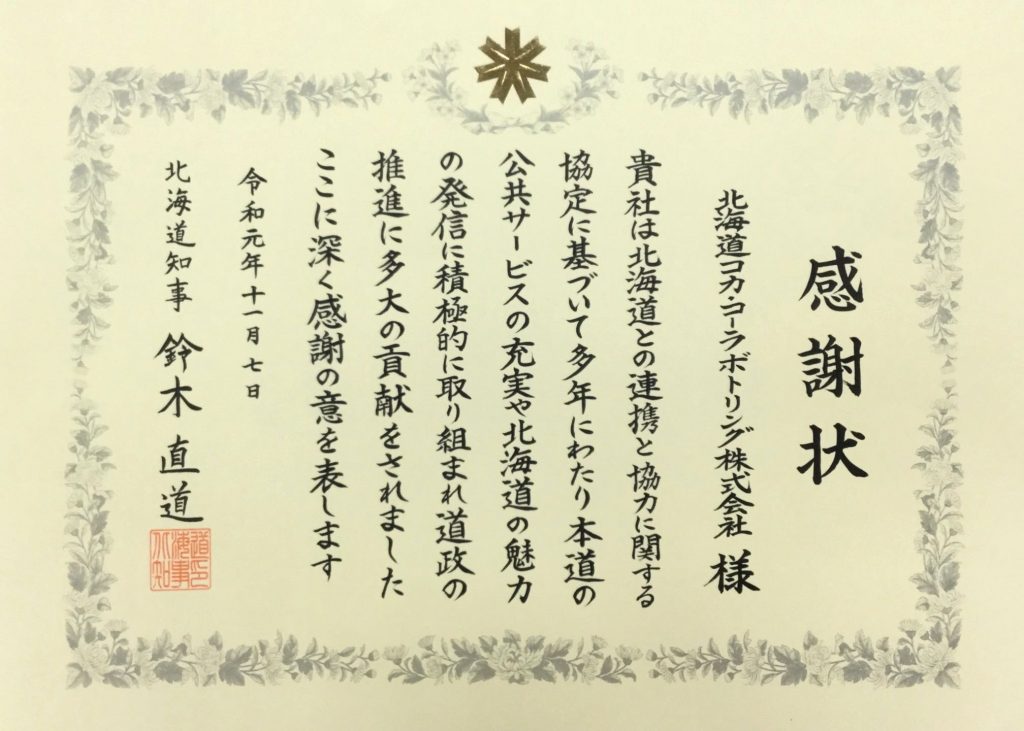 感謝状
北海道コカ・コーラボトリング株式会社 様
貴社は北海道との連携と協力に関する
協定に基づいて多年にわたり本道の
公共サービスの充実や北海道の魅力
の発信に積極的に取り組まれ道政の
推進に多大の貢献をされました
ここに深く感謝の意を表します
令和元年十一月七日
北海道知事 鈴木直道